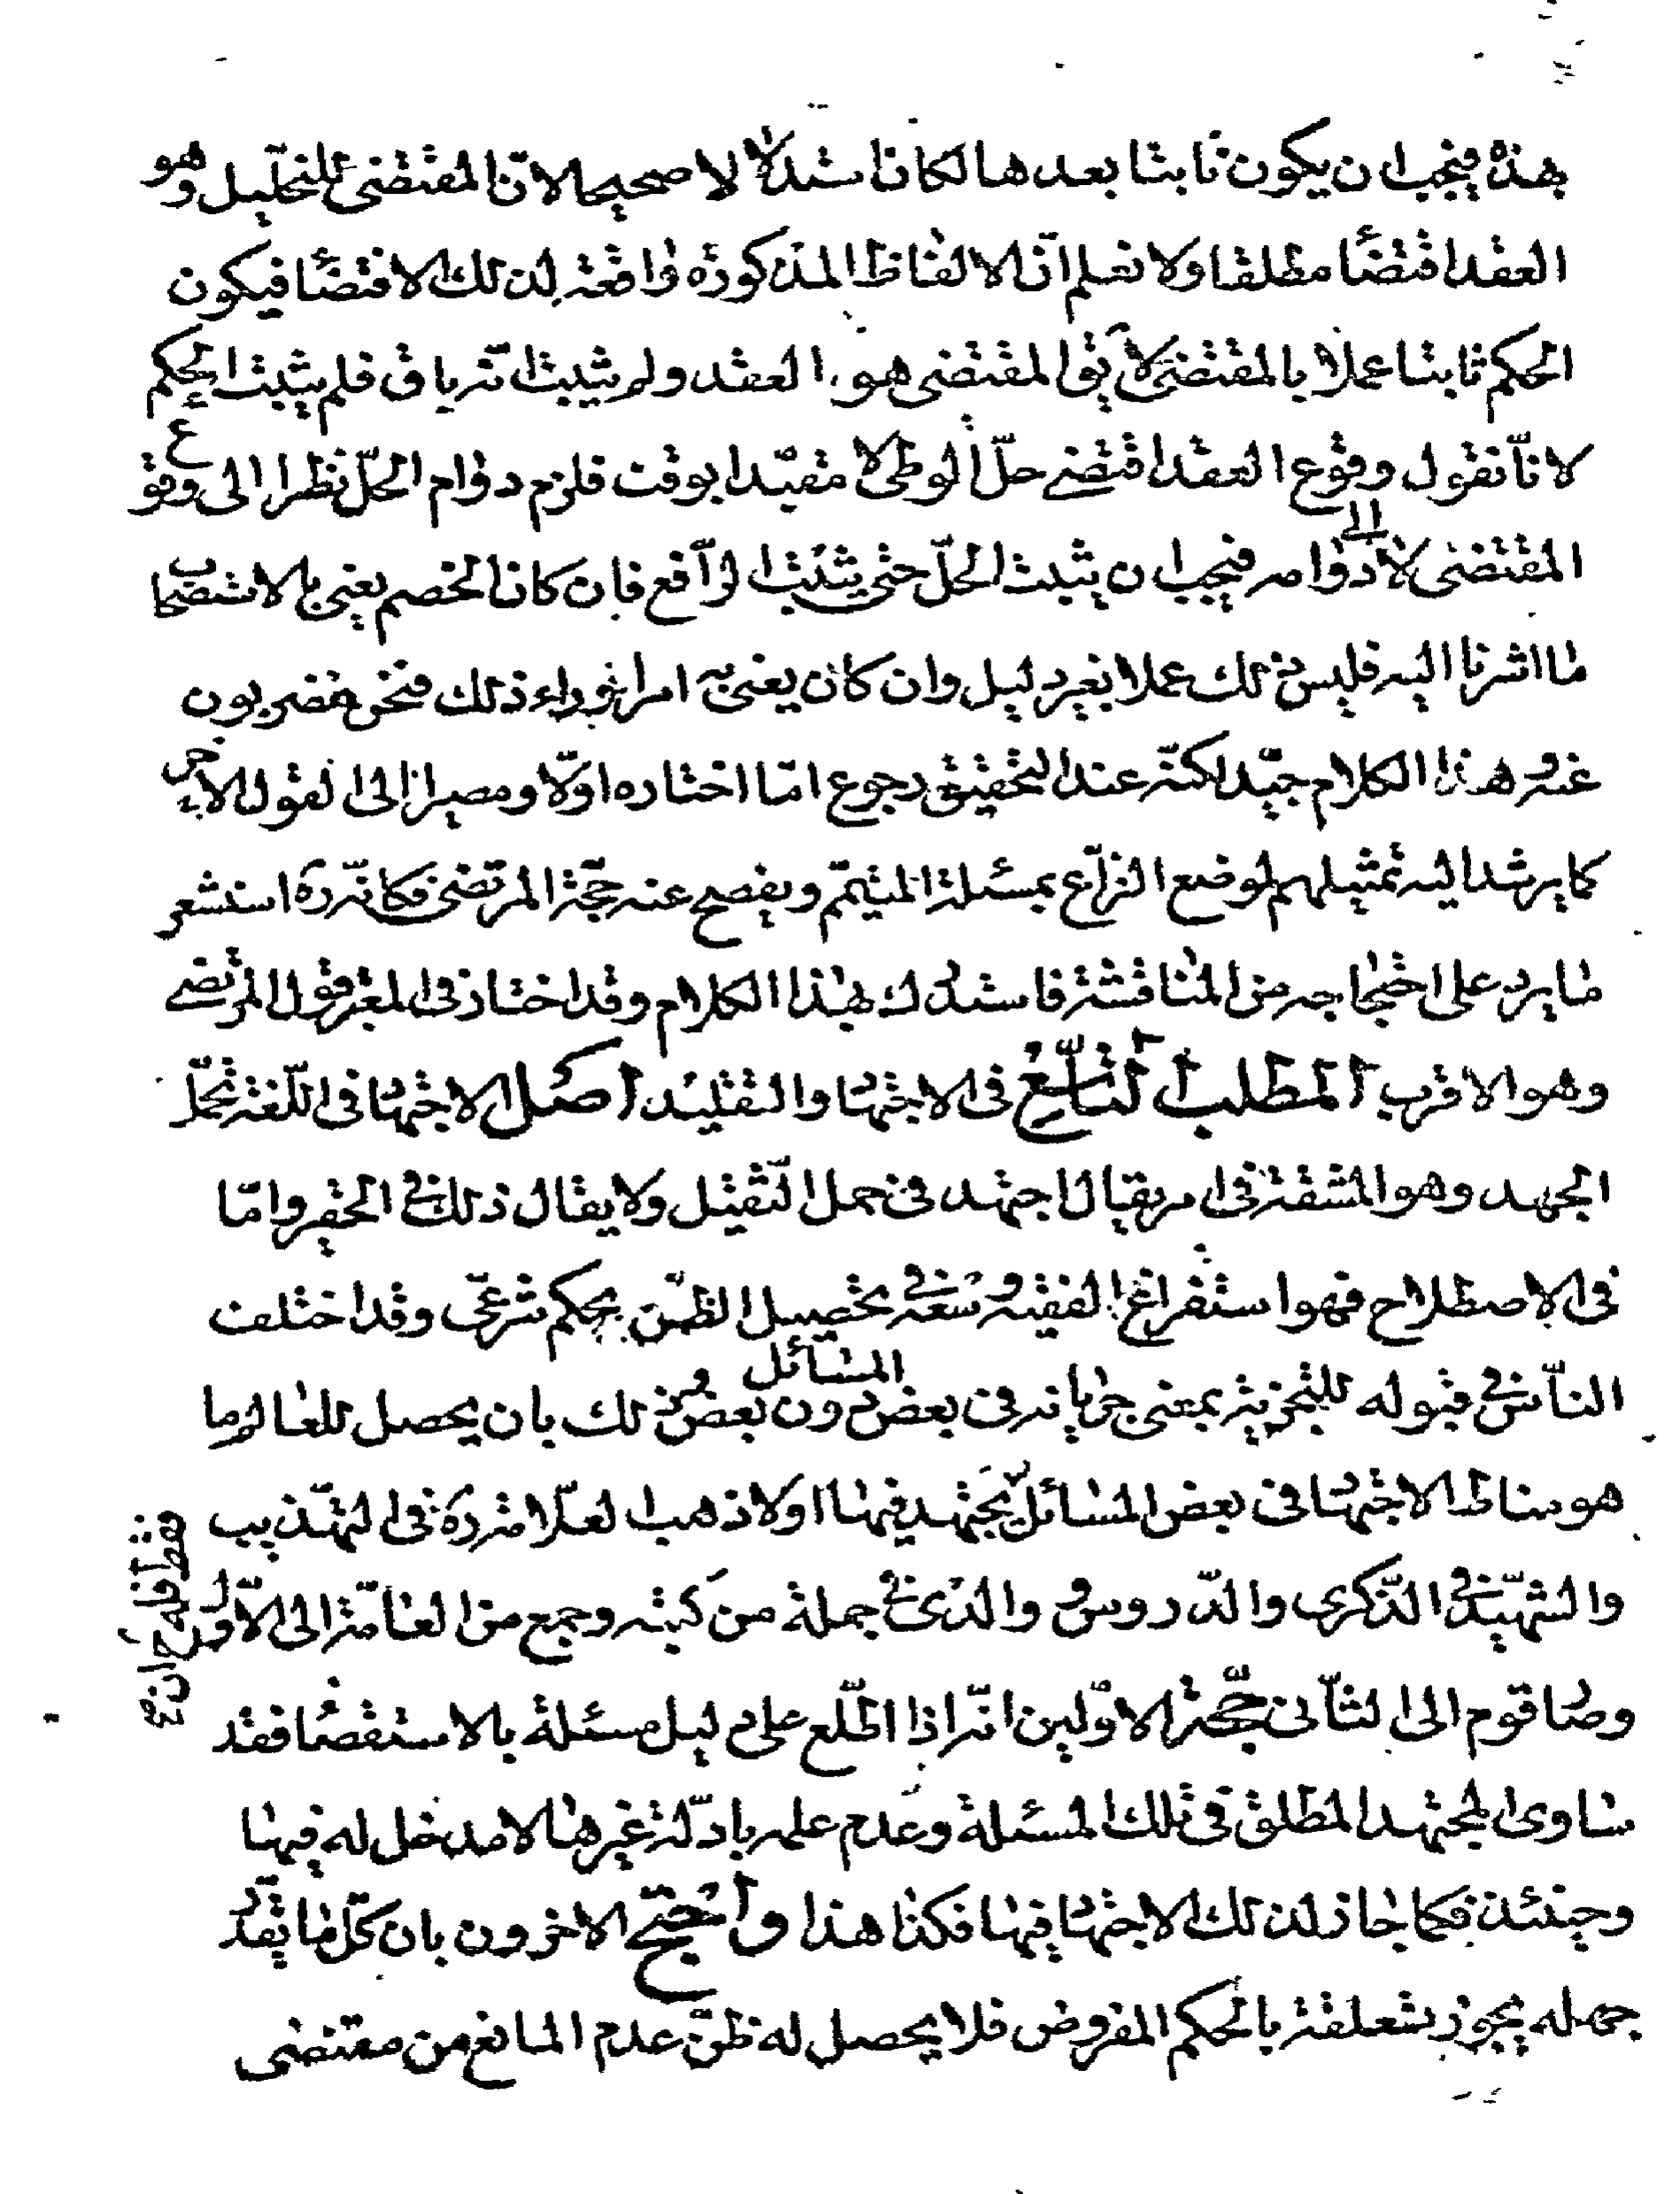 بهذه فيجب ان يكون ثابتا بعدها لكان استدلالا صحيحا لانّ المقتضى للتحليل وهو
العقد اقتضاء مطلقا ولا نعلم انّ الالفاظ المذكورة رافعة لذلك الاقتضاء فيكون
الحكم ثابتا عملا بالمقتضى لا يق المقتضى هو العقد ولم يثبت انّه باق فلم يثبت الحكم
لانّا نقول وقوع العقد اقتضى حلّ الوطى لا مقيّدا بوقت فلزم دوام الحلّ نظرا الى وقوع
المقتضى لا الى دوامه فيجب ان يثبت الحلّ حتى يثبت الرّافع فان كان الخصم يعنى بالاستصحاب
ما اشرنا اليه فليس ذلك عملا بغير دليل وان كان يعنى به امرا وراء ذلك فنحن مضربون
عنه وهذا الكلام جيّد لكنّه عند التحقيق رجوع عمّا اختاره اوّلا ومصير الى القول الاخر
كما يرشد اليه تمثيلهم لموضع النزاع بمسئلة المتيمّم ويفصح عنه حجّة المرتضى فكانّه ره استشعر
ما يرد على احتجاجه من المناقشة فاستدرك بهذا الكلام وقد اختار فى المعتبر قول المرتضى
وهو الاقرب المطلب التّاسع فى الاجتهاد والتقليد اصل الاجتهاد فى اللّغة تحمّل
الجهد وهو المشقة فى امر يقال اجتهد فى حمل الثّقيل ولا يقال ذلك فى الحقير وامّا
فى الاصطلاح فهو استفراغ الفقيه وسعه فى تحصيل الظّن بحكم شرعىّ وقد اختلف
النّاس فى قبوله للتجزية بمعنى جريانه فى بعض المسائل دون بعض وذلك بان يحصل للعالم ما
هو مناط الاجتهاد فى بعض المسائل فله ان يجتهد فيها اولا ذهب العلّامة ره فى التهذيب
والشهيد فى الذّكرى والدّروس والدى فى جملة من كتبه وجمع من العامّة الى الاوّل
وصار قوم الى الثّانى حجّة الاوّلين انّه اذا اطّلع على دليل مسئلة بالاستقصاء فقد
ساوى المجتهد المطلق فى تلك المسئلة وعدم علمه بادلّة غيرها لا مدخل له فيها
وحينئذ فكما جاز لذلك الاجتهاد فيها فكذا هذا واحتجّ الاخرون بان كلّ ما يقدّر
جهله يجوز تعلقه بالحكم المفروض فلا يحصل له ظنّ عدم المانع من مقتضى